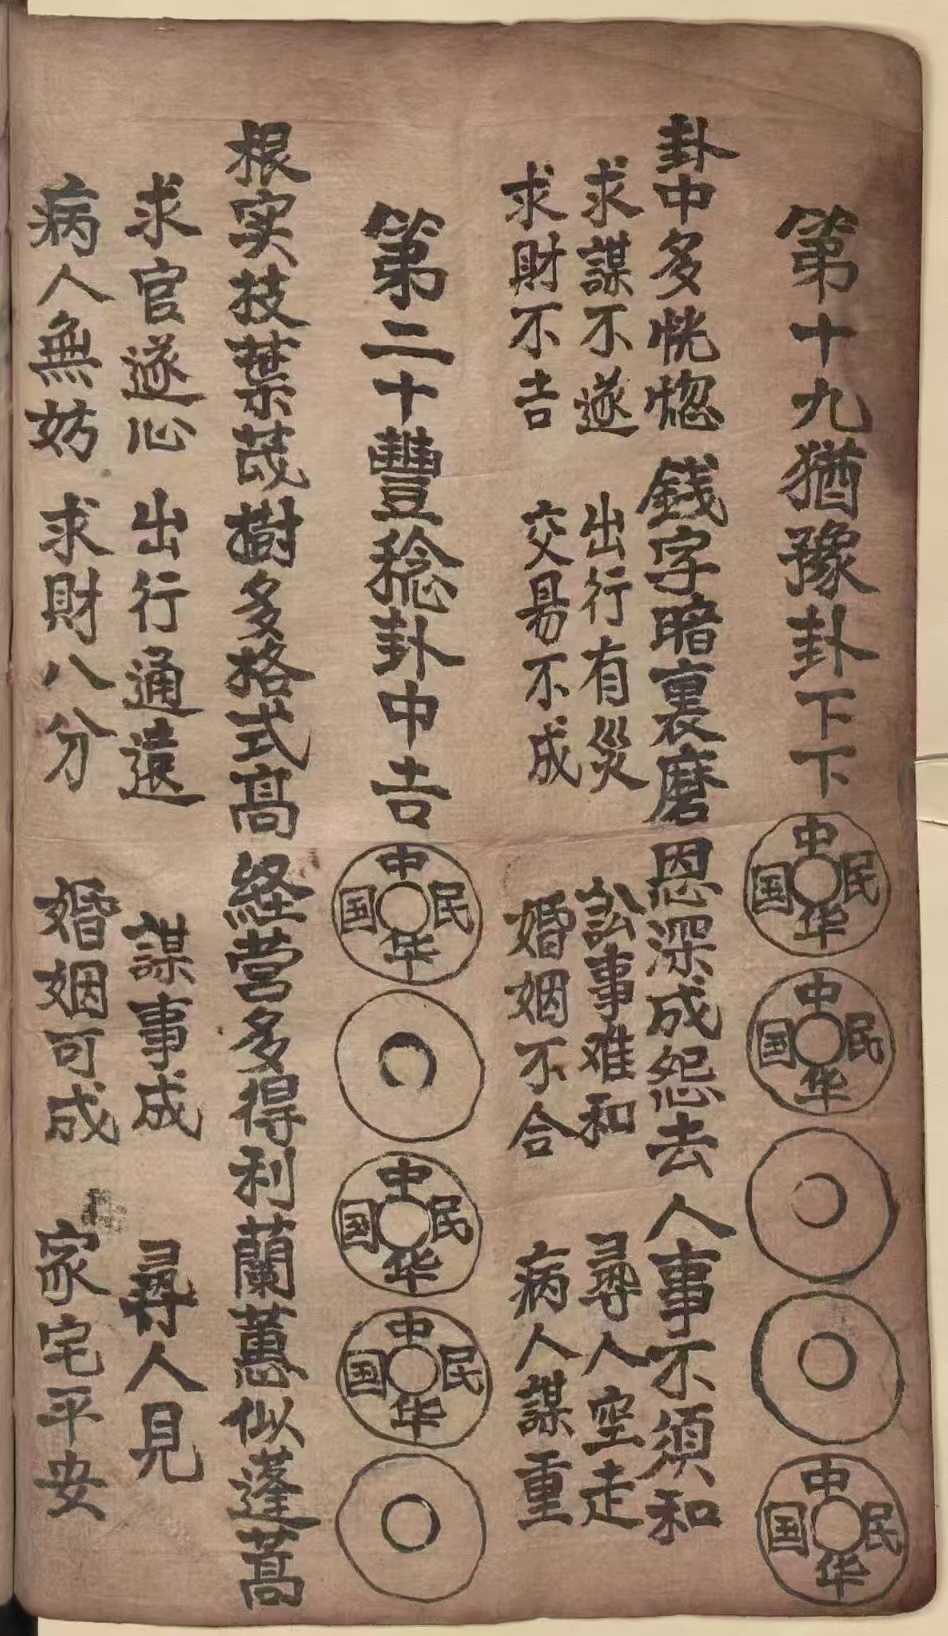 第十九猶豫卦下下
中华民国
中华民国
中华民国
卦中多恍惚 錢字暗裏磨 恩深成怨去 人事不須和
求謀不遂 出行有災 訟事难和 尋人空走
求財不吉 交易不成 婚姻不合 病人謀重
第二十豐稔卦中吉
中华民国
中华民国
中华民国
根实技葉茂 樹多格式高 経营多得利 蘭蕙似蓬蒿
求官遂心 出行通远 謀事成 尋人見
病人無妨 求財八分 婚姻可成 家宅平安